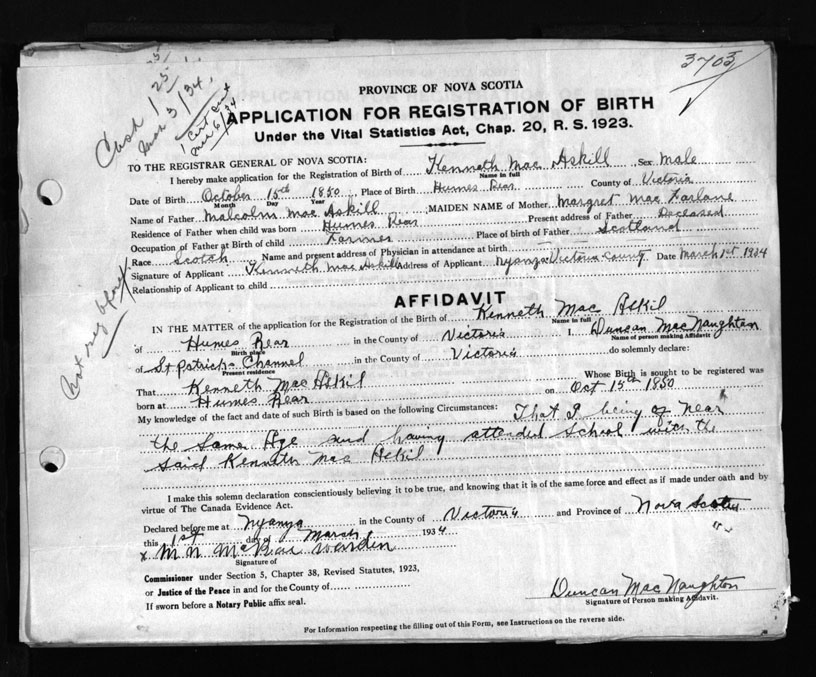 3703
Cash 1.25
Mar 3/34
1 Cert sent
Mar 6/34
PROVINCE OF NOVA SCOTIA
APPLICATION FOR REGISTRATION OF BIRTH
Under the Vital Statistics Act, Chap. 20, R. S. 1923.
TO THE REGISTRAR GENERAL OF NOVA SCOTIA:
I hereby make application for the Registration of Birth of Kenneth Mac Askill Sex Male
Name in full
Date of Birth October 15th 1850, Place of Birth Humes Rear County of Victoria
Month Day Year
Name of Father Malcolm Mac Askill, MAIDEN NAME of Mother Margret Mac Farlane
Residence of Father when child was born Humes Rear Present address of Father Deceased
Occupation of Father at Birth of child Farmer Place of birth of Father Scotland
Race Scotch Name and present address of Physician in attendance at birth
Signature of Applicant Kenneth Mac Askill Address of Applicant Nyanza Victoria County. Date March 1st 1934
Relationship of Applicant to child
Not reg before
AFFIDAVIT
IN THE MATTER of the application for the Registration of the Birth of Kenneth Mac Askil
Name in full
of Humes Rear in the County of Victoria I, Duncan MacNaughton
Birth place Name of person making Affidavit
of St Patricks Channel in the County of Victoria do solemnly declare:
Present residence
That Kenneth Mac Askil Whose Birth is sought to be registered was
born at Humes Rear on Oct 15th 1850
My knowledge of the fact and date of such Birth is based on the following Circumstances: That I being of near
the same Age and having attended School with the
said Kenneth Mac Askil
I make this solemn declaration conscientiously believing it to be true, and knowing that it is of the same force and effect as if made under oath and by
virtue of The Canada Evidence Act.
Declared before me at Nyanza in the County of Victoria and Province of Nova Scotia
this 1st day of March 1934
x M. N. Warden
Signature of
Commissioner under Section 5, Chapter 38, Revised Statutes, 1923,
or Justice of the Peace in and for the County of
If sworn before a Notary Public affix seal.
Duncan MacNaughton
Signature of Person making Affidavit.
For Information respecting the filling out of this Form, see Instructions on the reverse side.